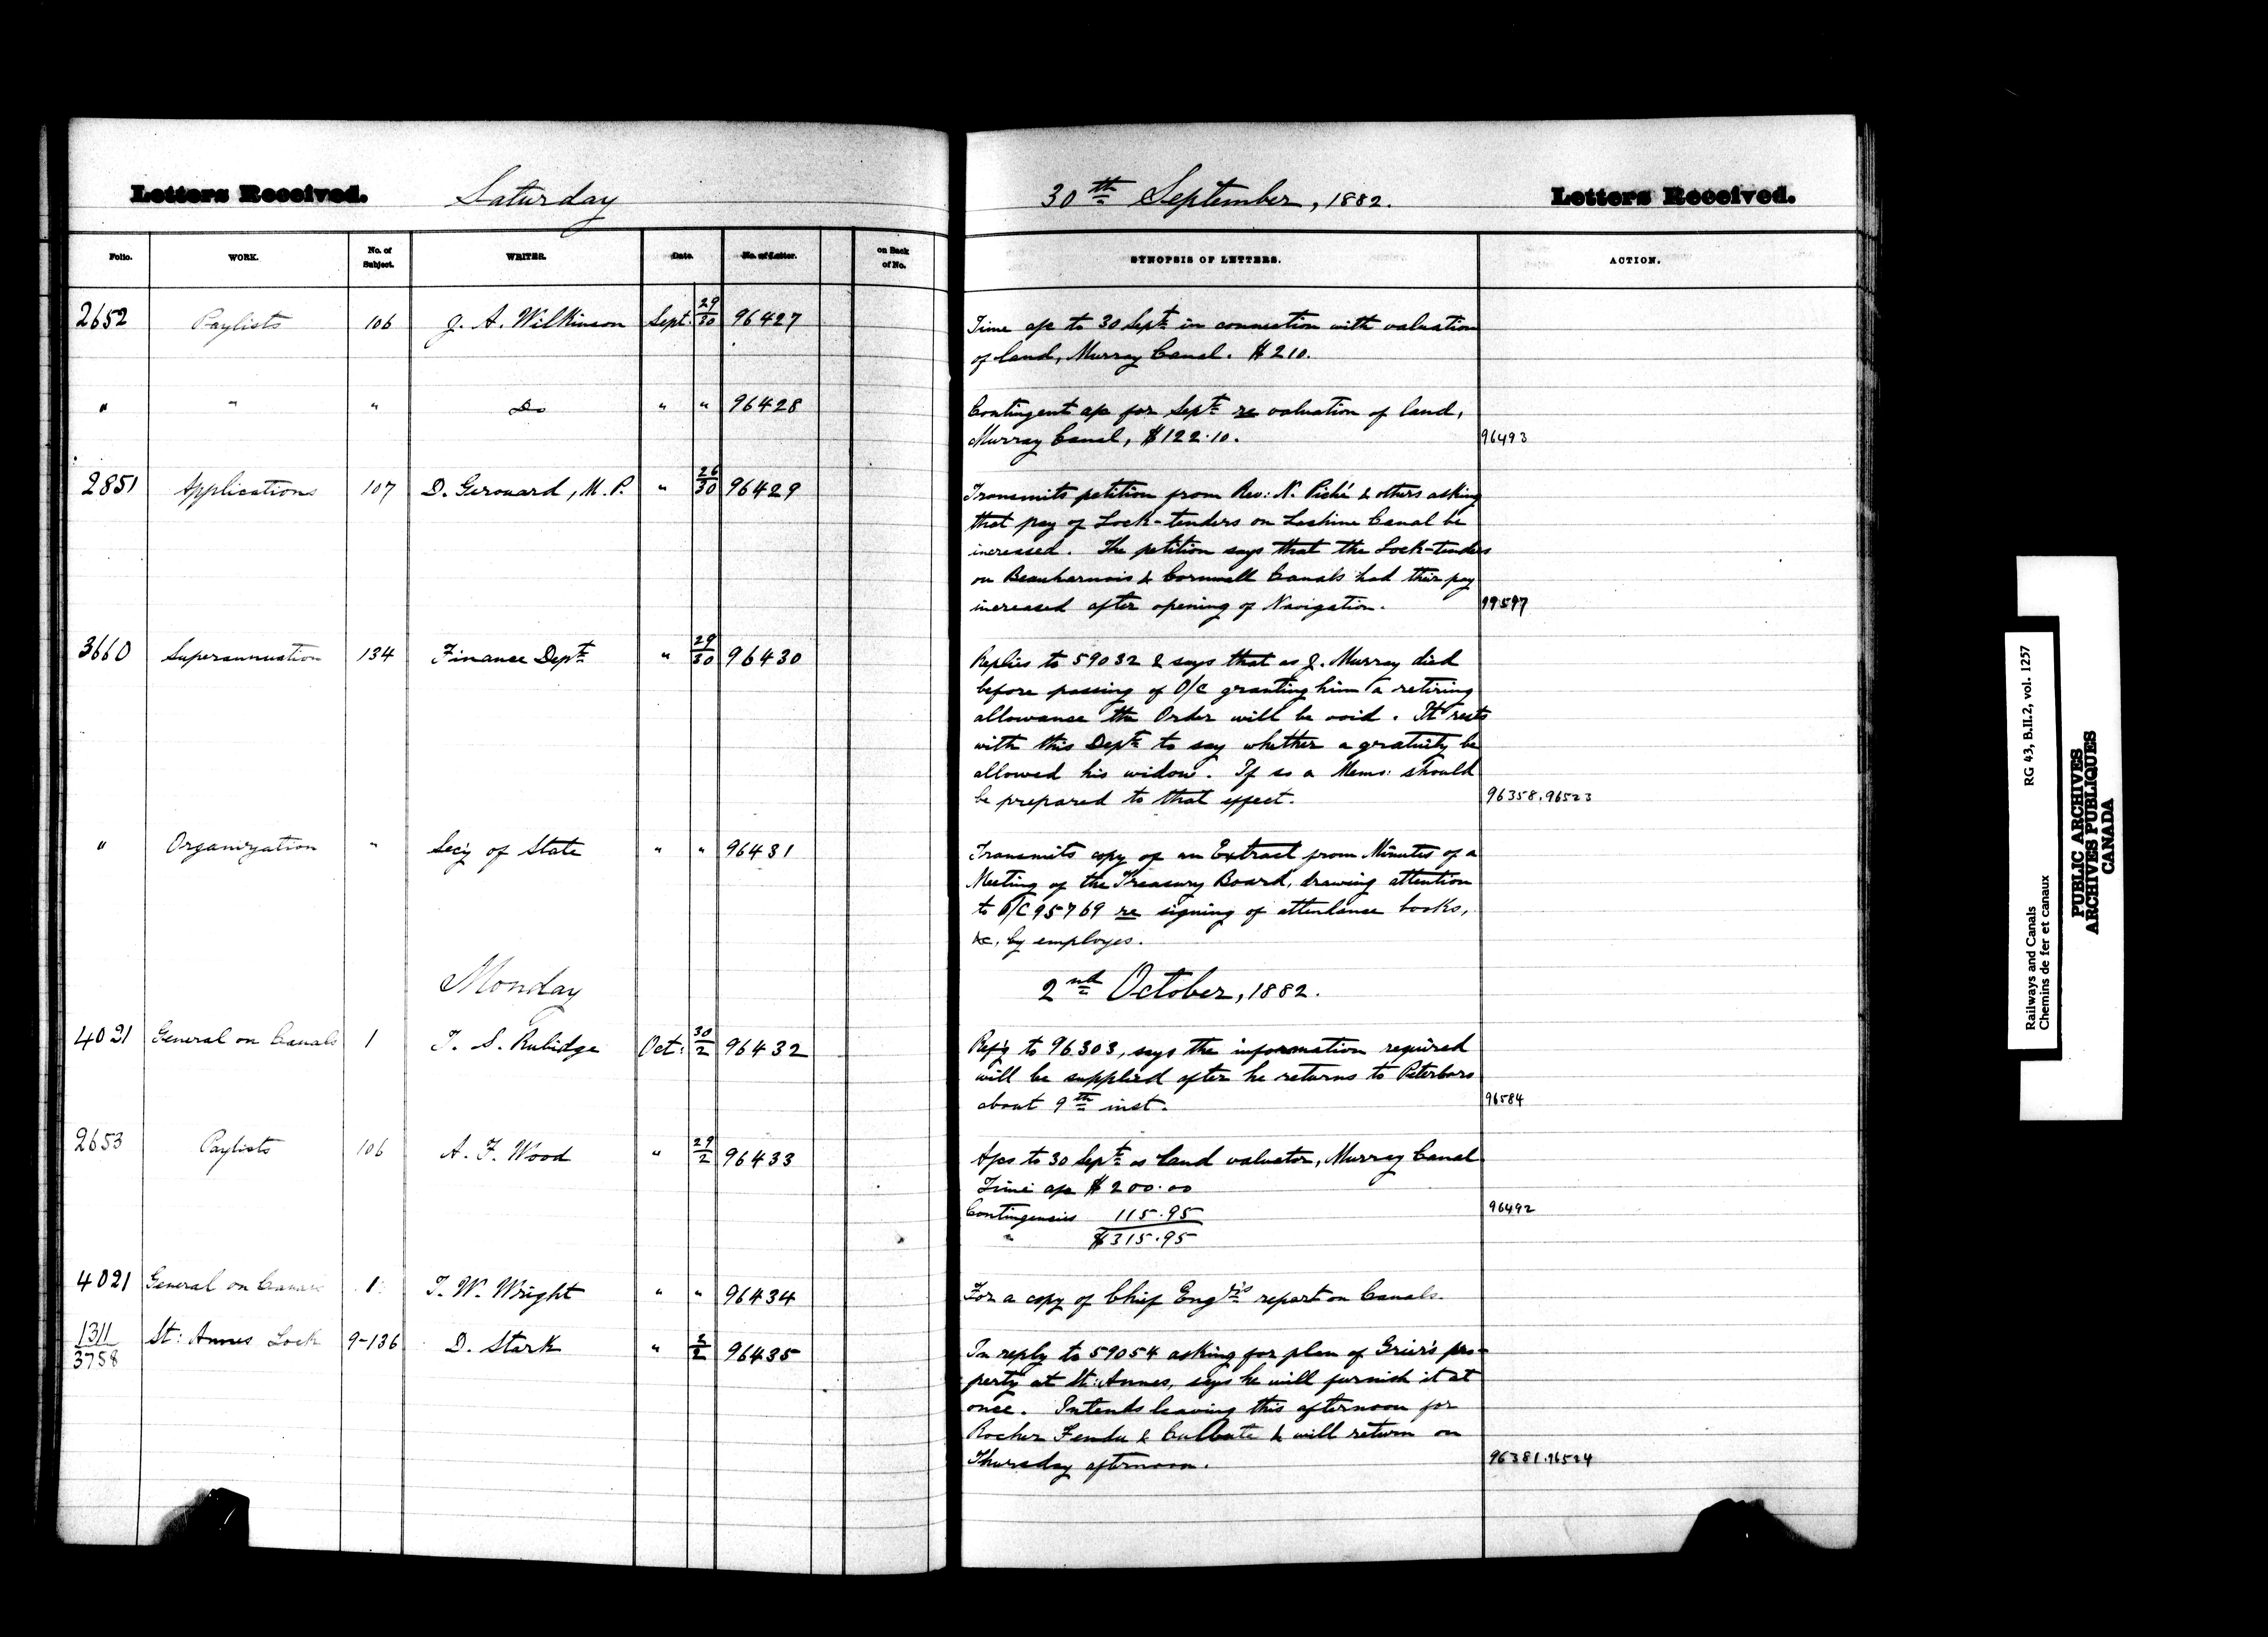 Letters Received. Saturday 30th September, 1882. Letters Received.
Folio. WORK. No. of Subject. WRITER. Date. No. of Letter. on Back of No. SYNOPSIS OF LETTERS. ACTION.
2652 Paylists 106 J. A. Wilkinson Sept. 29/30 96427 Time a/c to 30 Sept. in connection with valuation
of land, Murray Canal. $210.
" " " Do " " 96428 Contingent a/c for Sept. re valuation of land,
Murray Canal, $122.10. 96493
2851 Applications 107 D. Gerouard, M.P. " 26/30 96429 Transmits petition from Rev: N. Piché & others asking
that pay of Lock-tenders on Lachine Canal be
increased. The petition says that the Lock-tenders
on Beauharnois & Cornwall Canals had their pay
increased after opening of Navigation. 99597
3660 Superannuation 134 Finance Dept. " 29/30 96430 Replies to 59032 & says that as J. Murray died
before passing of O/C granting him a retiring
allowance the Order will be void. It rests
with this Dept. to say whether a gratuity be
allowed his widow. If so a Memo: should
be prepared to that effect. 96358.96523
" Organization " Sec'y of State " " 96431 Transmits copy of an Extract from Minutes of a
Meeting of the Treasury Board, drawing attention
to O/C 95769 re signing of attendance books,
&c, by employes.
Monday 2nd October, 1882.
4021 General on Canals 1 T. S. Rubidge Oct: 30/2 96432 Rep'g to 96303, says the information required
will be supplied after he returns to Peterboro
about 9th inst. 96584
2653 Paylists 106 A. F. Wood " 29/2 96433 A/cs to 30 Sept. as land valuator, Murray Canal
Time a/c $200.00
Contingencies 115.95 96492
" $315.95
4021 General on Canals 1 T. W. Wright " " 96434 For a copy of Chief Engr's report on Canals.
1311/3758 St: Annes Lock 9-136 D. Stark " 2/2 96435 In reply to 59054 asking for plan of Grier's pro-
perty at St: Annes, says he will furnish it at
once. Intends leaving this afternoon for
Rocher Fendu & Culbute & will return on
Thursday afternoon. 96381.96524
Railways and Canals RG 43, B.II.2, vol. 1257
Chemins de fer et canaux
PUBLIC ARCHIVES
ARCHIVES PUBLIQUES
CANADA